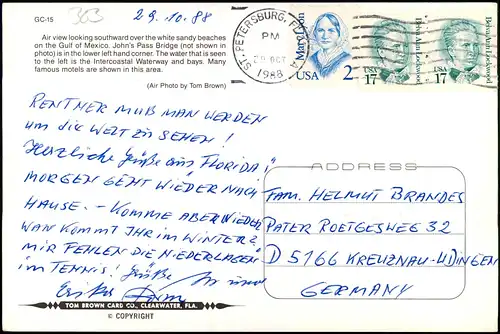 GC-15
303
29.10.88
Air view looking southward over the white sandy beaches
on the Gulf of Mexico. John's Pass Bridge (not shown in
photo) is in the lower left hand corner. The water that is seen
to the left is the Intercoastal Waterway and bays. Many
famous motels are shown in this area.
(Air Photo by Tom Brown)
ST. PETERSBURG, FL
PM
29 OCT
1988
Mary Lyon
USA 2
USA
17
Belva Ann Lockwood
USA
17
Belva Ann Lockwood
RENTNER MUß MAN WERDEN
um die WELT ZU SEHEN!
Herzliche Grüße aus FLORIDA!
MORGEN GEHT WIEDER NACH
HAUSE. - KOMME ABER WIEDER
WAN KOMMT IHR im WINTER?
MIR FEHLEN DIE NIEDERLAGEN
im TENNIS! Grüße
Erika
ADDRESS
FAM. HELMUT BRANDES
PATER ROETGESWEG 32
D 5166 KREUZNAU-UDINGEN
GERMANY
TOM BROWN CARD CO., CLEARWATER, FLA.
© COPYRIGHT